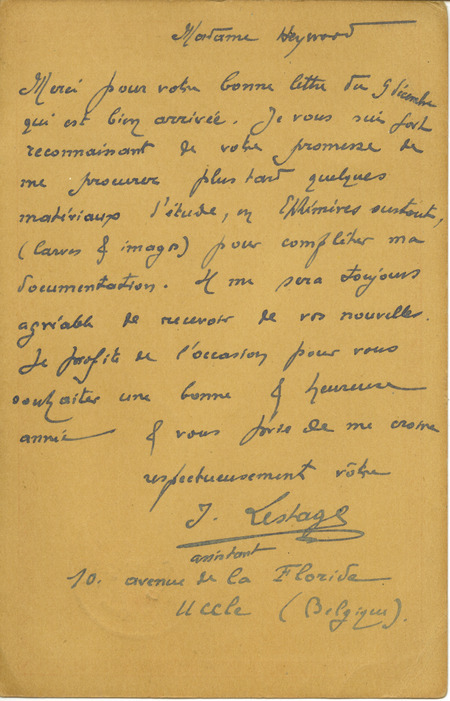 Madame Heywood
Merci pour votre bonne lettre du 9 décembre
qui est bien arrivée. Je vous suis fort
reconnaissant de votre promesse de
me procurer plus tard quelques
matériaux d'étude, en Ephémères surtout,
(larves & imagos) pour compléter ma
documentation. Il me sera toujours
agréable de recevoir de vos nouvelles.
Je profite de l'occasion pour vous
souhaiter une bonne & heureuse
année & vous prie de me croire
respectueusement vôtre
J. Lestage
assistant
10. avenue de la Floride
Uccle (Belgique).